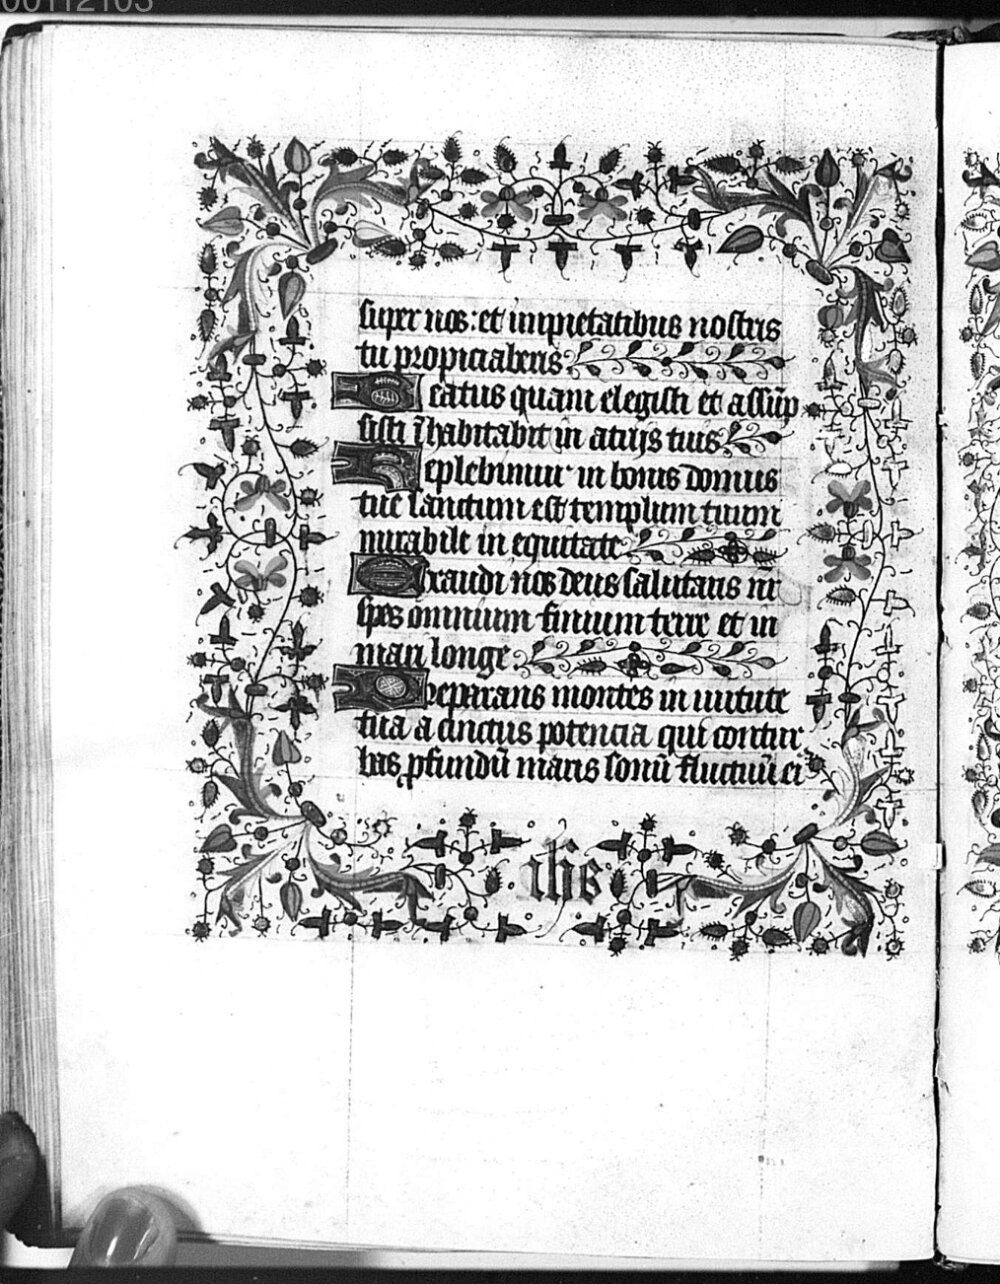 00112103
super nos: et impietatibus nostris
tu propiciaberis
Beatus quam elegisti et assūp
sisti ĩhabitabit in atrijs tuis
Replebimur in bonis domus
tue sanctum est templum tuum
mirabile in equitate
Exaudi nos deus salutaris nr̄
spes omnium finium terre et in
mari longe
Preparans montes in uirtute
tua a cinctus potencia qui contur
bas ꝓfundū maris sonū fluctuū ei
ihs